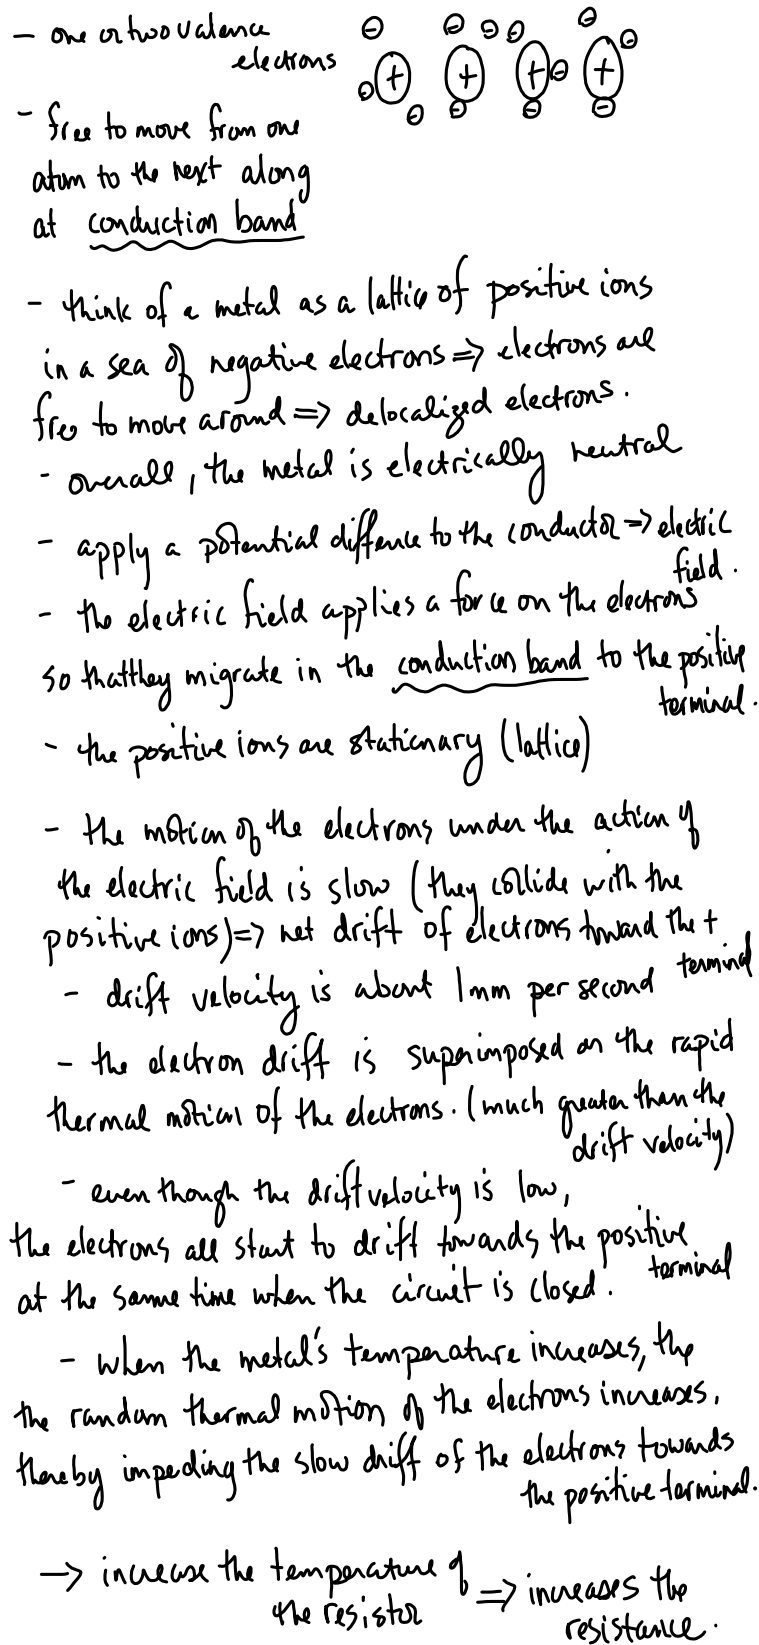 - one or two valence
electrons
- free to move from one
atom to the next along
at conduction band
- think of a metal as a lattice of positive ions
in a sea of negative electrons => electrons are
free to move around => delocalized electrons.
- overall, the metal is electrically neutral
- apply a potential diffence to the conductor => electric
field.
- the electric field applies a force on the electrons
so that they migrate in the conduction band to the positive
terminal.
- the positive ions are stationary (lattice)
- the motion of the electrons under the action of
the electric field is slow (they collide with the
positive ions) => net drift of electrons toward the +
terminal
- drift velocity is about 1mm per second
- the electron drift is superimposed on the rapid
thermal motion of the electrons. (much greater than the
drift velocity)
- even though the drift velocity is low,
the electrons all start to drift towards the positive
terminal
at the same time when the circuit is closed.
- when the metal's temperature increases, the
the random thermal motion of the electrons increases,
thereby impeding the slow drift of the electrons towards
the positive terminal.
→ increase the temperature of
the resistor => increases the
resistance.